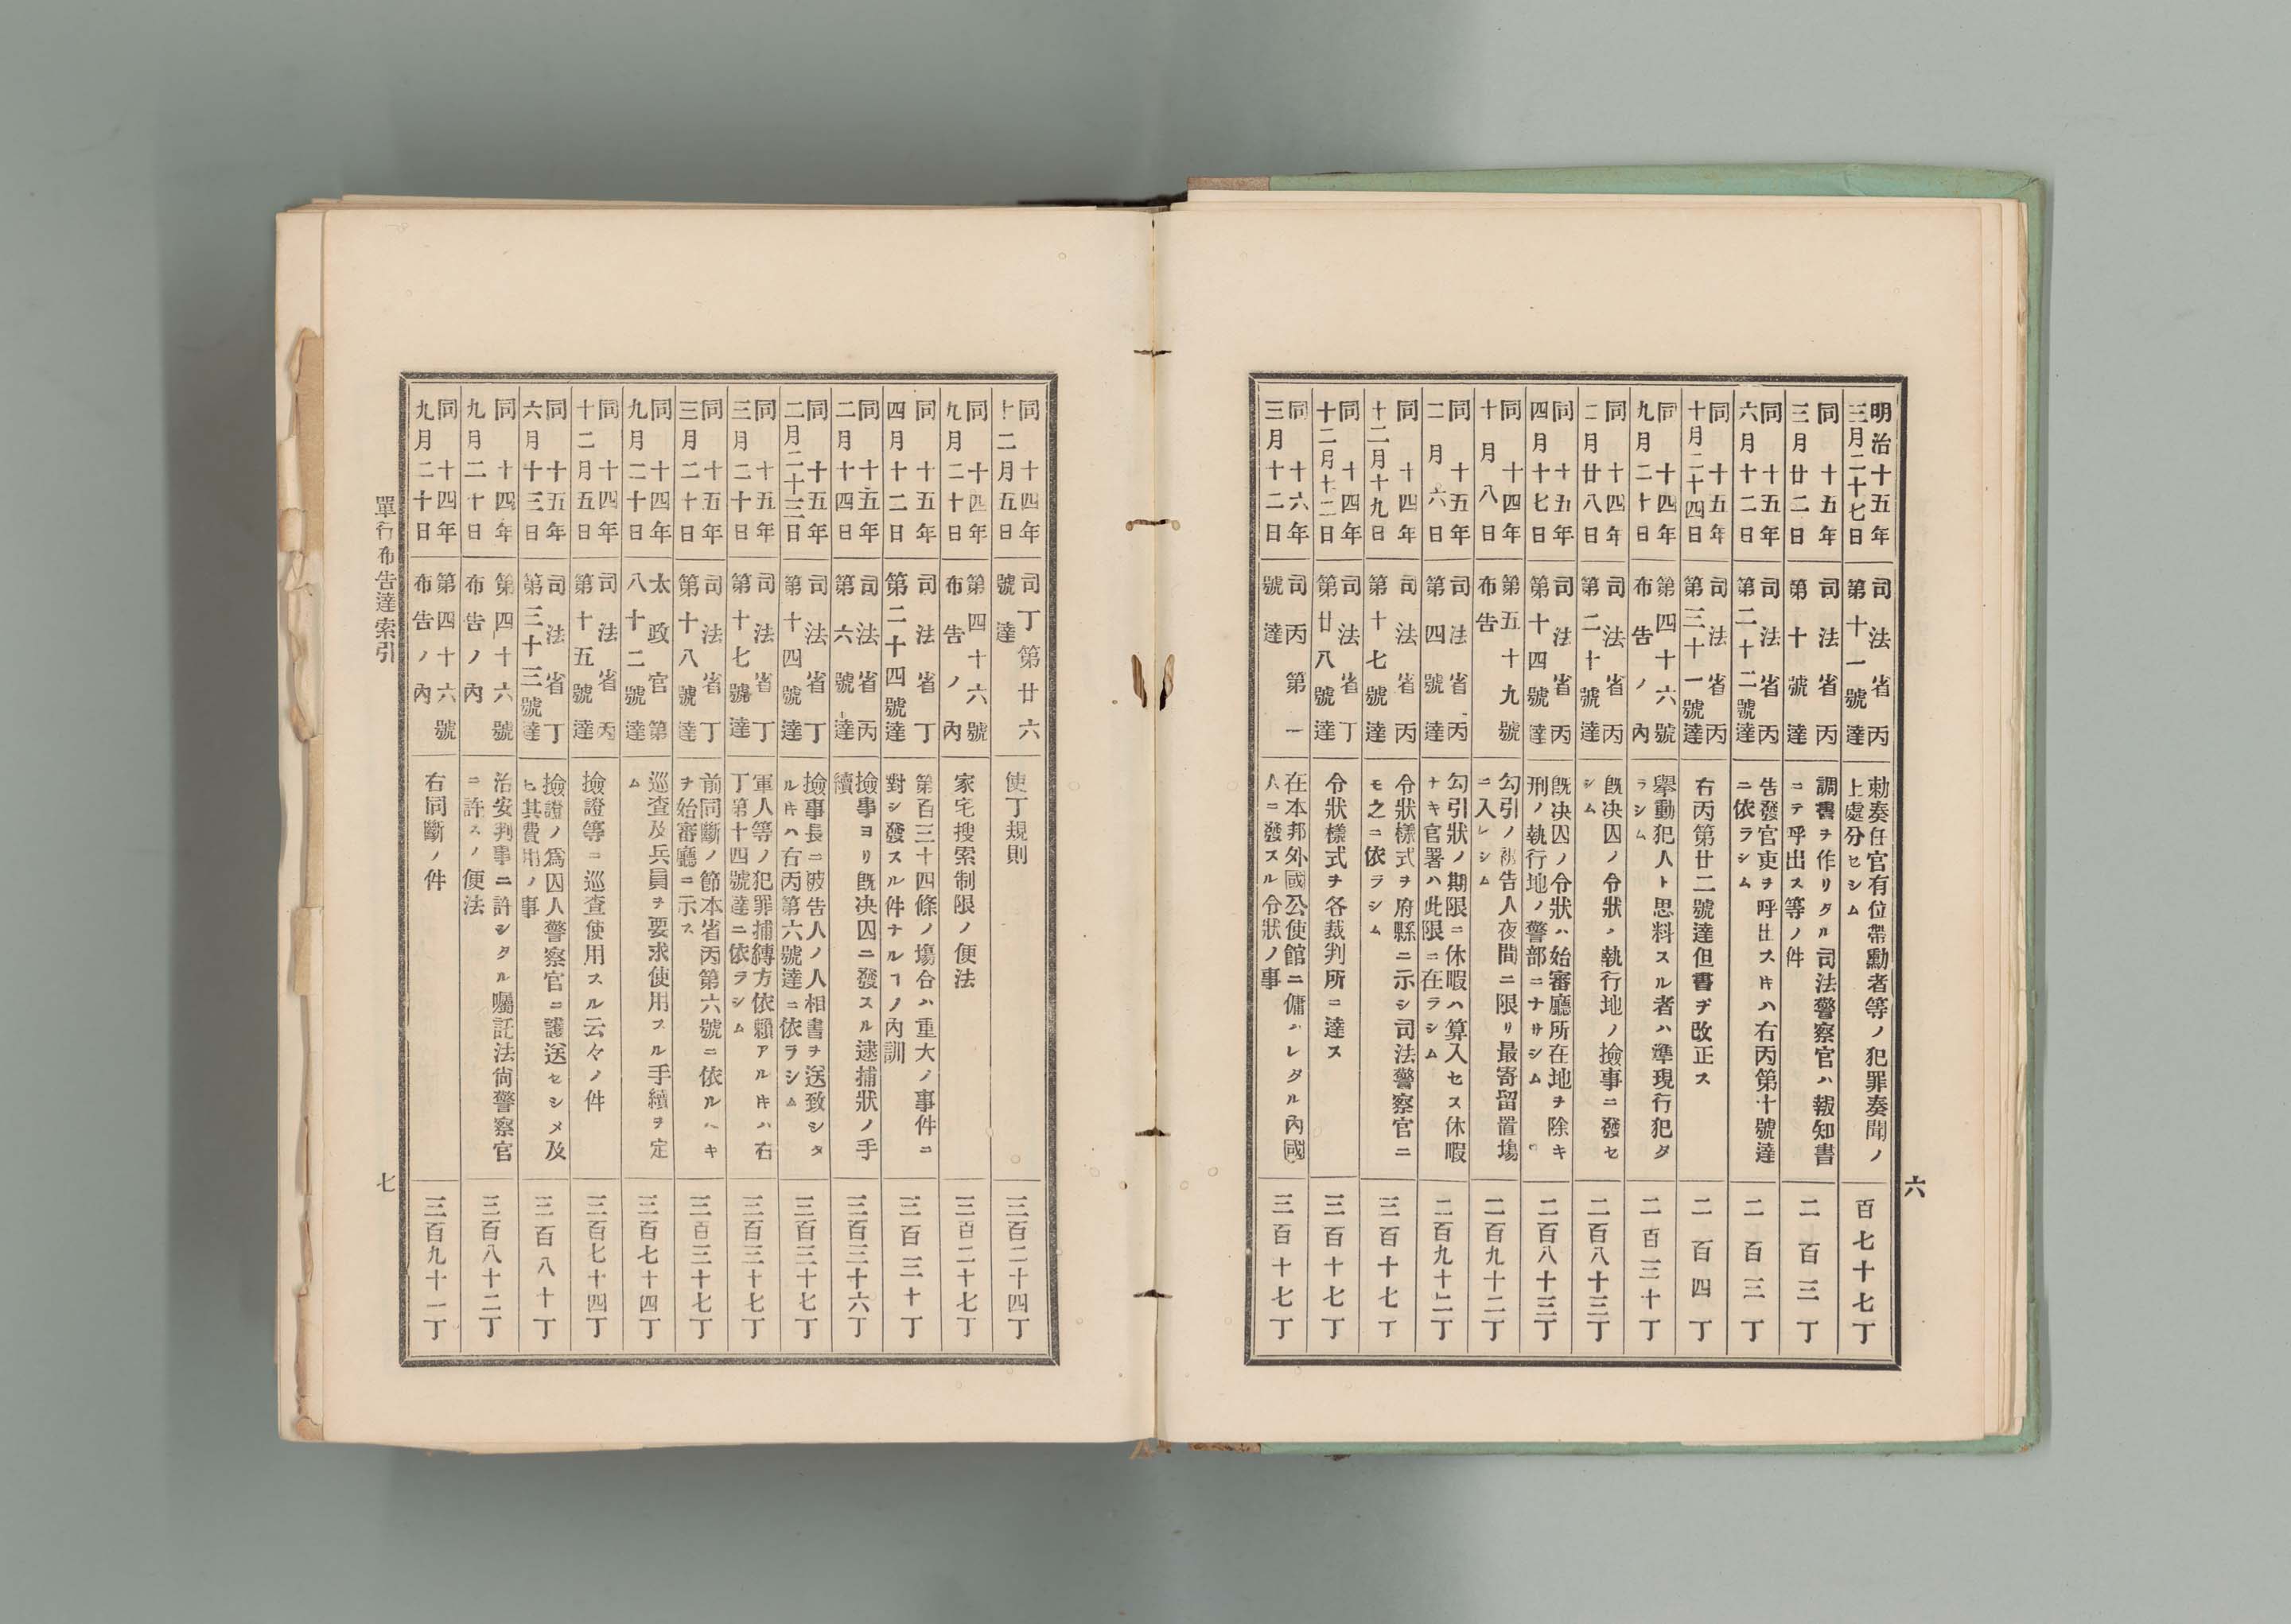 六
明治十五年
三月二十七日
司法省丙
第十一號達
勅奏任官有位帶勳者等ノ犯罪奏聞ノ
上處分セシム
百七十七丁
同十五年
三月廿二日
司法省丙
第十號達
調書ヲ作リタル司法警察官ハ報知書
ニテ呼出ス等ノ件
二百三丁
同十五年
六月十二日
司法省丙
第二十二號達
告發官吏ヲ呼出スキハ右丙第十號達
ニ依ラシム
二百三丁
同十五年
十月二十四日
司法省丙
第三十一號達
右丙第廿二號達但書ヲ改正ス
二百四丁
同十四年
九月二十日
第四十六號
布告ノ內
擧動犯人ト思料スル者ハ準現行犯タ
ラシム
二百三十丁
同十四年
二月廿八日
司法省丙
第二十號達
既決囚ノ令狀ノ執行地ノ撿事ニ發セ
シム
二百八十三丁
同十五年
四月十七日
司法省丙
第十四號達
既決囚ノ令狀ハ始審廳所在地ヲ除キ
刑ノ執行地ノ警部ニナサシム
二百八十三丁
同十四年
十月八日
第五十九號
布告
勾引ノ被告人夜間ニ限リ最寄留置塲
ニ入レシム
二百九十二丁
同十五年
二月六日
司法省丙
第四號達
勾引狀ノ期限ニ休暇ハ算入セス休暇
ナキ官署ハ此限ニ在ラシム
二百九十二丁
同十四年
十二月十九日
司法省丙
第十七號達
令狀樣式ヲ府縣ニ示シ司法警察官ニ
モ之ニ依ラシム
三百十七丁
同十四年
十二月十二日
司法省丁
第廿八號達
令狀樣式ヲ各裁判所ニ達ス
三百十七丁
同十六年
三月十二日
司丙第一
號達
在本邦外國公使館ニ傭ハレタル內國
人ニ發スル令狀ノ事
三百十七丁
同十四年
十二月五日
司丁第廿六
號達
使丁規則
三百二十四丁
同十四年
九月二十日
第四十六號
布告ノ內
家宅搜索制限ノ便法
三百二十七丁
同十五年
四月十二日
司法省丁
第二十四號達
第百三十四條ノ塲合ハ重大ノ事件ニ
對シ發スル件ナルヿノ內訓
三百三十丁
同十五年
二月十四日
司法省丙
第六號達
撿事ヨリ既決囚ニ發スル逮捕狀ノ手
續
三百三十六丁
同十五年
二月二十三日
司法省丁
第十四號達
撿事長ニ被告人ノ人相書ヲ送致シタ
ルキハ右丙第六號達ニ依ラシム
三百三十七丁
同十五年
三月二十日
司法省丁
第十七號達
軍人等ノ犯罪捕縛方依賴アルキハ右
丁第十四號達ニ依ラシム
三百三十七丁
同十五年
三月二十日
司法省丁
第十八號達
前同斷ノ節本省丙第六號ニ依ルヘキ
ヲ始審廳ニ示ス
三百三十七丁
同十四年
九月二十日
太政官第
八十二號達
巡查及兵員ヲ要求使用スル手續ヲ定
ム
三百七十四丁
同十四年
十二月五日
司法省丙
第十五號達
撿證等ニ巡查使用スル云々ノ件
三百七十四丁
同十五年
六月十三日
司法省丁
第三十三號達
撿證ノ爲囚人警察官ニ護送セシメ及
ヒ其費用ノ事
三百八十丁
同十四年
九月二十日
第四十六號
布告ノ內
治安判事ニ許シタル囑託法尙警察官
ニ許スノ便法
三百八十二丁
同十四年
九月二十日
第四十六號
布告ノ內
右同斷ノ件
三百九十一丁
單行布告達索引
七